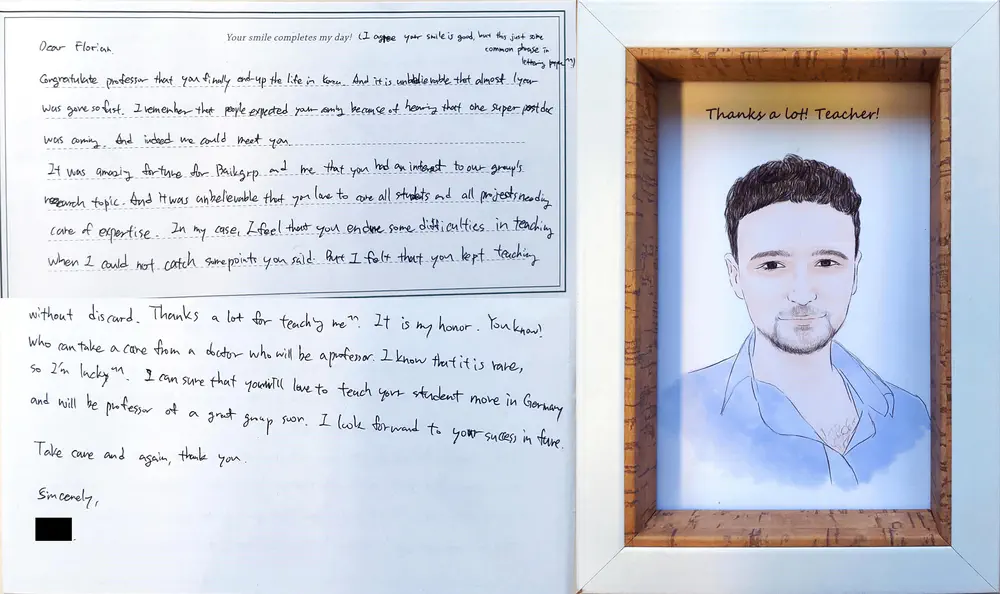 Your smile completes my day! (I agree your smile is good, but this just some
common phrase in
lettering paper^^)
Dear Florian.
Congratulate professor that you finally end-up the life in Korea. And it is unbelievable that almost 1 year
was gone so fast. I remember that people expected your coming because of hearing that one super postdoc
was coming. And indeed we could meet you.
It was amazing fortune for Baikgrp and me that you had an interest to our group's
research topic. And it was unbelievable that you love to care all students and all projects needing
care of expertise. In my case, I feel that you endure some difficulties in teaching
when I could not catch some points you said. But I felt that you kept teaching
without discard. Thanks a lot for teaching me^^. It is my honor. You know!
Who can take a care from a doctor who will be a professor. I know that it is rare,
so I'm lucky^^. I can sure that you will love to teach your student more in Germany
and will be professor of a great group soon. I look forward to your success in future.
Take care and again, thank you.
Sincerely,
Thanks a lot! Teacher!